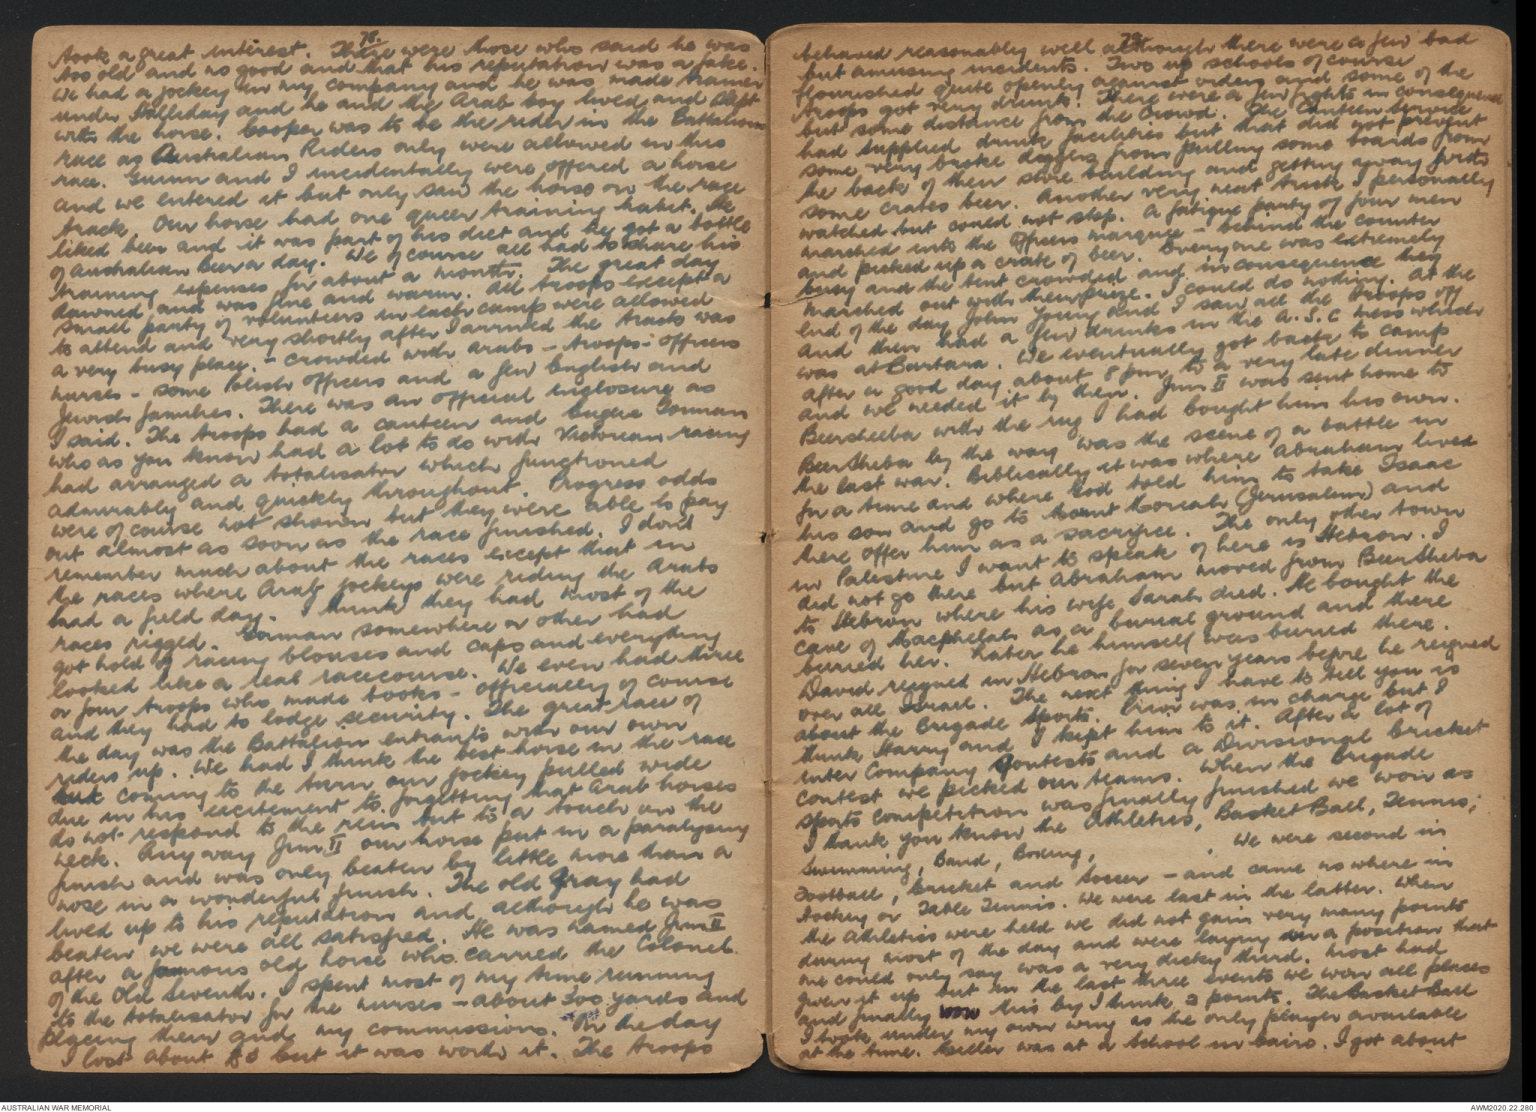 78.
took a great interest. There were those who said he was
too old and no good and that his reputation was a fake.
We had a jockey in my company and he was made trainer
under Halliday and he and the Arab boy lived and slept
with the horse. Cooper was to be the rider in the Battalion
race as Australian Riders only were allowed in this
race. Guinn and I incidentally were offered a horse
and we entered it but only saw the horse on the race
track. Our horse had one queer training habit. He
liked beer and it was part of his diet and he got a bottle
of Australian Beer a day. We of course all had to share his
training expenses for about a month. The great day
dawned and was fine and warm. All troops except a
small party of volunteers in each camp were allowed
to attend and very shortly after I arrived the track was
a very busy place. - crowded with Arabs - troops - officers
nurses - some Polish officers and a few English and
Jewish families. There was an official inclosure as
I said. The troops had a canteen and Eugene Gorman
who as you know had a lot to do with Victorian racing
had arranged a totalisator which functioned
admirably and quickly throughout. Progress odds
were of course not shown but they were able to pay
out almost as soon as the race finished. I don't
remember much about the races except that in
the races where Arab jockeys were riding the Arabs
had a field day. I think they had most of the
races rigged. Gorman somewhere or other had
got hold of racing blouses and caps and everything
looked like a real racecourse. We even had three
or four troops who made books - officially of course
and they had to lodge security. The great race of
the day was the Battalion entrants with our own
riders up. We had I think the best horse in the race
but coming to the turn our jockey pulled wide
due in his excitement to forgetting that Arab horses
do not respond to the rein but to a touch on the
neck. Any way Jim II our horse put in a paralysing
finish and was only beaten by little more than a
nose in a wonderful finish. The old Gray had
lived up to his reputation and although he was
beaten we were all satisfied. He was named Jim II
after a famous old horse who carried the Colonel
of the Old Seventh. I spent most of my time running
to the totalisator for the nurses - about 300 yards and
placing their and my commissions. On the day
I lost about £8 but it was worth it. The troops
79.
behaved reasonably well although there were a few bad
but amusing incidents. Two up schools of course
flourished quite openly against orders and some of the
troops got very drunk. There were a few fights in consequence
but some distance from the crowd. The Canteen Service
had supplied drink facilities but that did not prevent
some very broke diggers from pulling some boards from
the back of their store building and getting away with
some crates beer. Another very neat trick I personally
watched but could not stop. A fatigue party of four men
marched into the Officers marquee - behind the counter
and picked up a crate of beer. Everyone was extremely
busy and the tent crowded and in consequence they
marched out with their prize. I could do nothing. At the
end of the day John Young and I saw all the troops off
and then had a few drinks in the A.S.C mess which
was at Barbara. We eventually got back to camp
after a good day about 8 pm to a very late dinner
and we needed it by then. Jim II was sent home to
Beersheeba with the rug I had bought him his own.
BeerSheba by the way was the scene of a battle in
the last war. Biblically it was where Abraham lived
for a time and where God told him to take Isaac
his son and go to Mount Moreah (Jerusalem) and
there offer him as a sacrifice. The only other town
in Palestine I want to speak of here is Hebron. I
did not go there but Abraham moved from BeerSheba
to Hebron where his wife Sarah died. He bought the
cave of Macphelah as a burial ground and there
buried her. Later he himself was buried there.
David reigned in Hebron for seven years before he reigned
over all Israel. The next thing I have to tell you is
about the Brigade Sports. was in charge but I
think Harry and I kept him to it. After a lot of
inter Company Contests and a Divisional Cricket
contest we picked our teams. When the Brigade
sports competition was finally finished we won as
I think you know the Athletics, Basket Ball, Tennis,
Swimming, Band, Boxing, . We were second in
Football, Cricket and Soccer - and came no where in
Hockey or Table Tennis. We were last in the latter. When
the Athletics were held we did not gain very many points
during most of the day and were laying in a position that
one could only say was a very dicky third. Most had
given it up but in the last three events we won all places
and finally won this by I think 2 points. The Basket Ball
I took under my own wing as the only player available
at the time. was at a School in Cairo. I got about
AUSTRALIAN WAR MEMORIAL
AWM2020.22.280